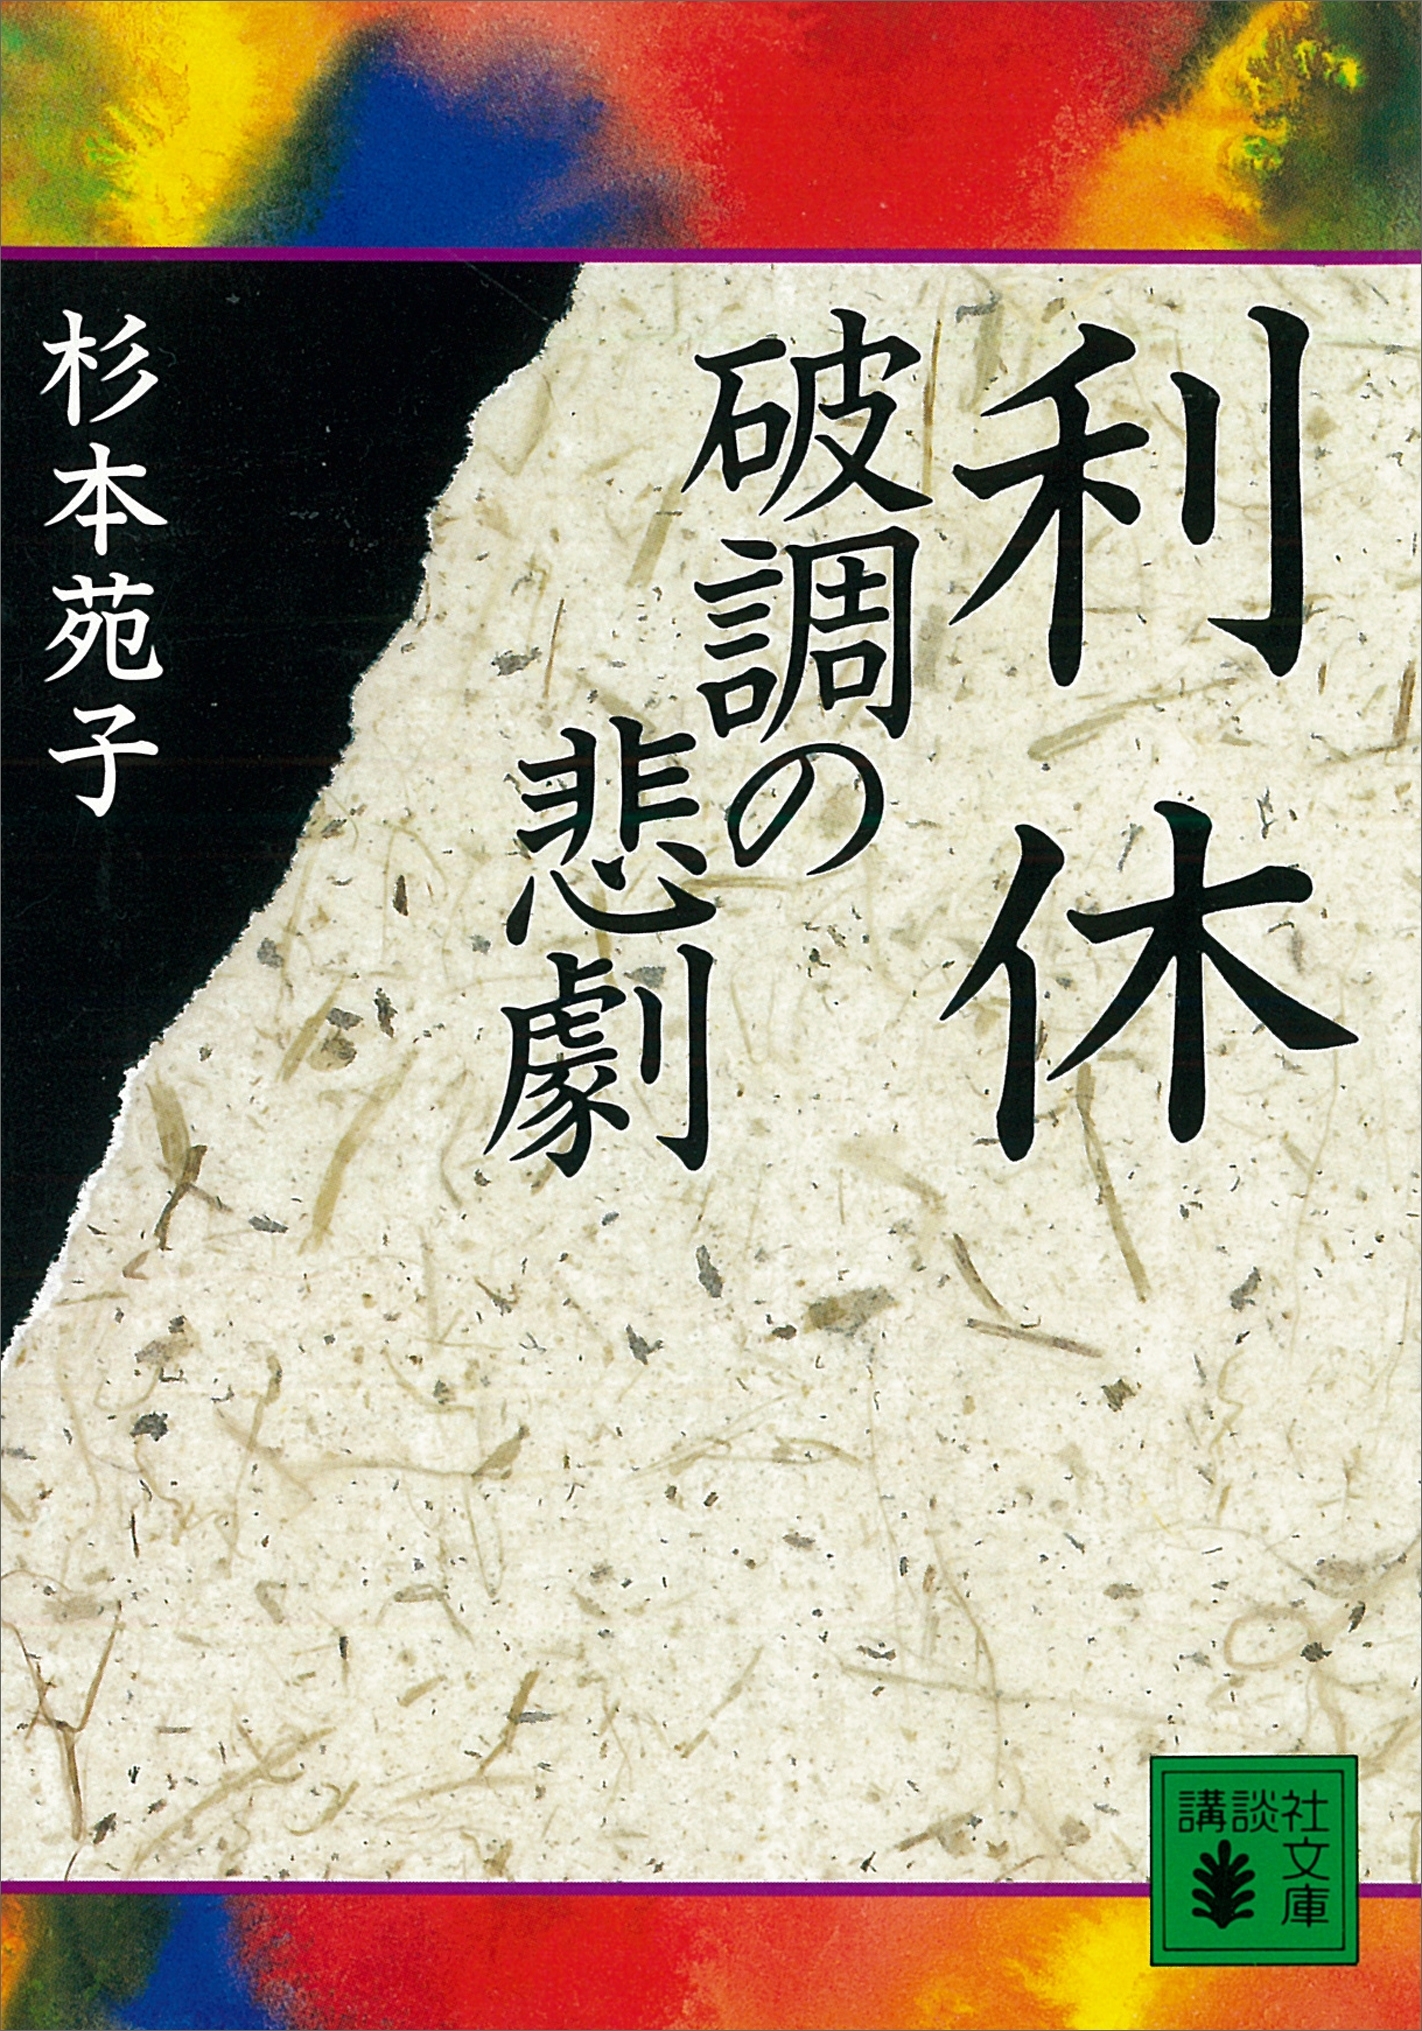 利休
破調の
悲劇
杉本苑子
講談社
文庫